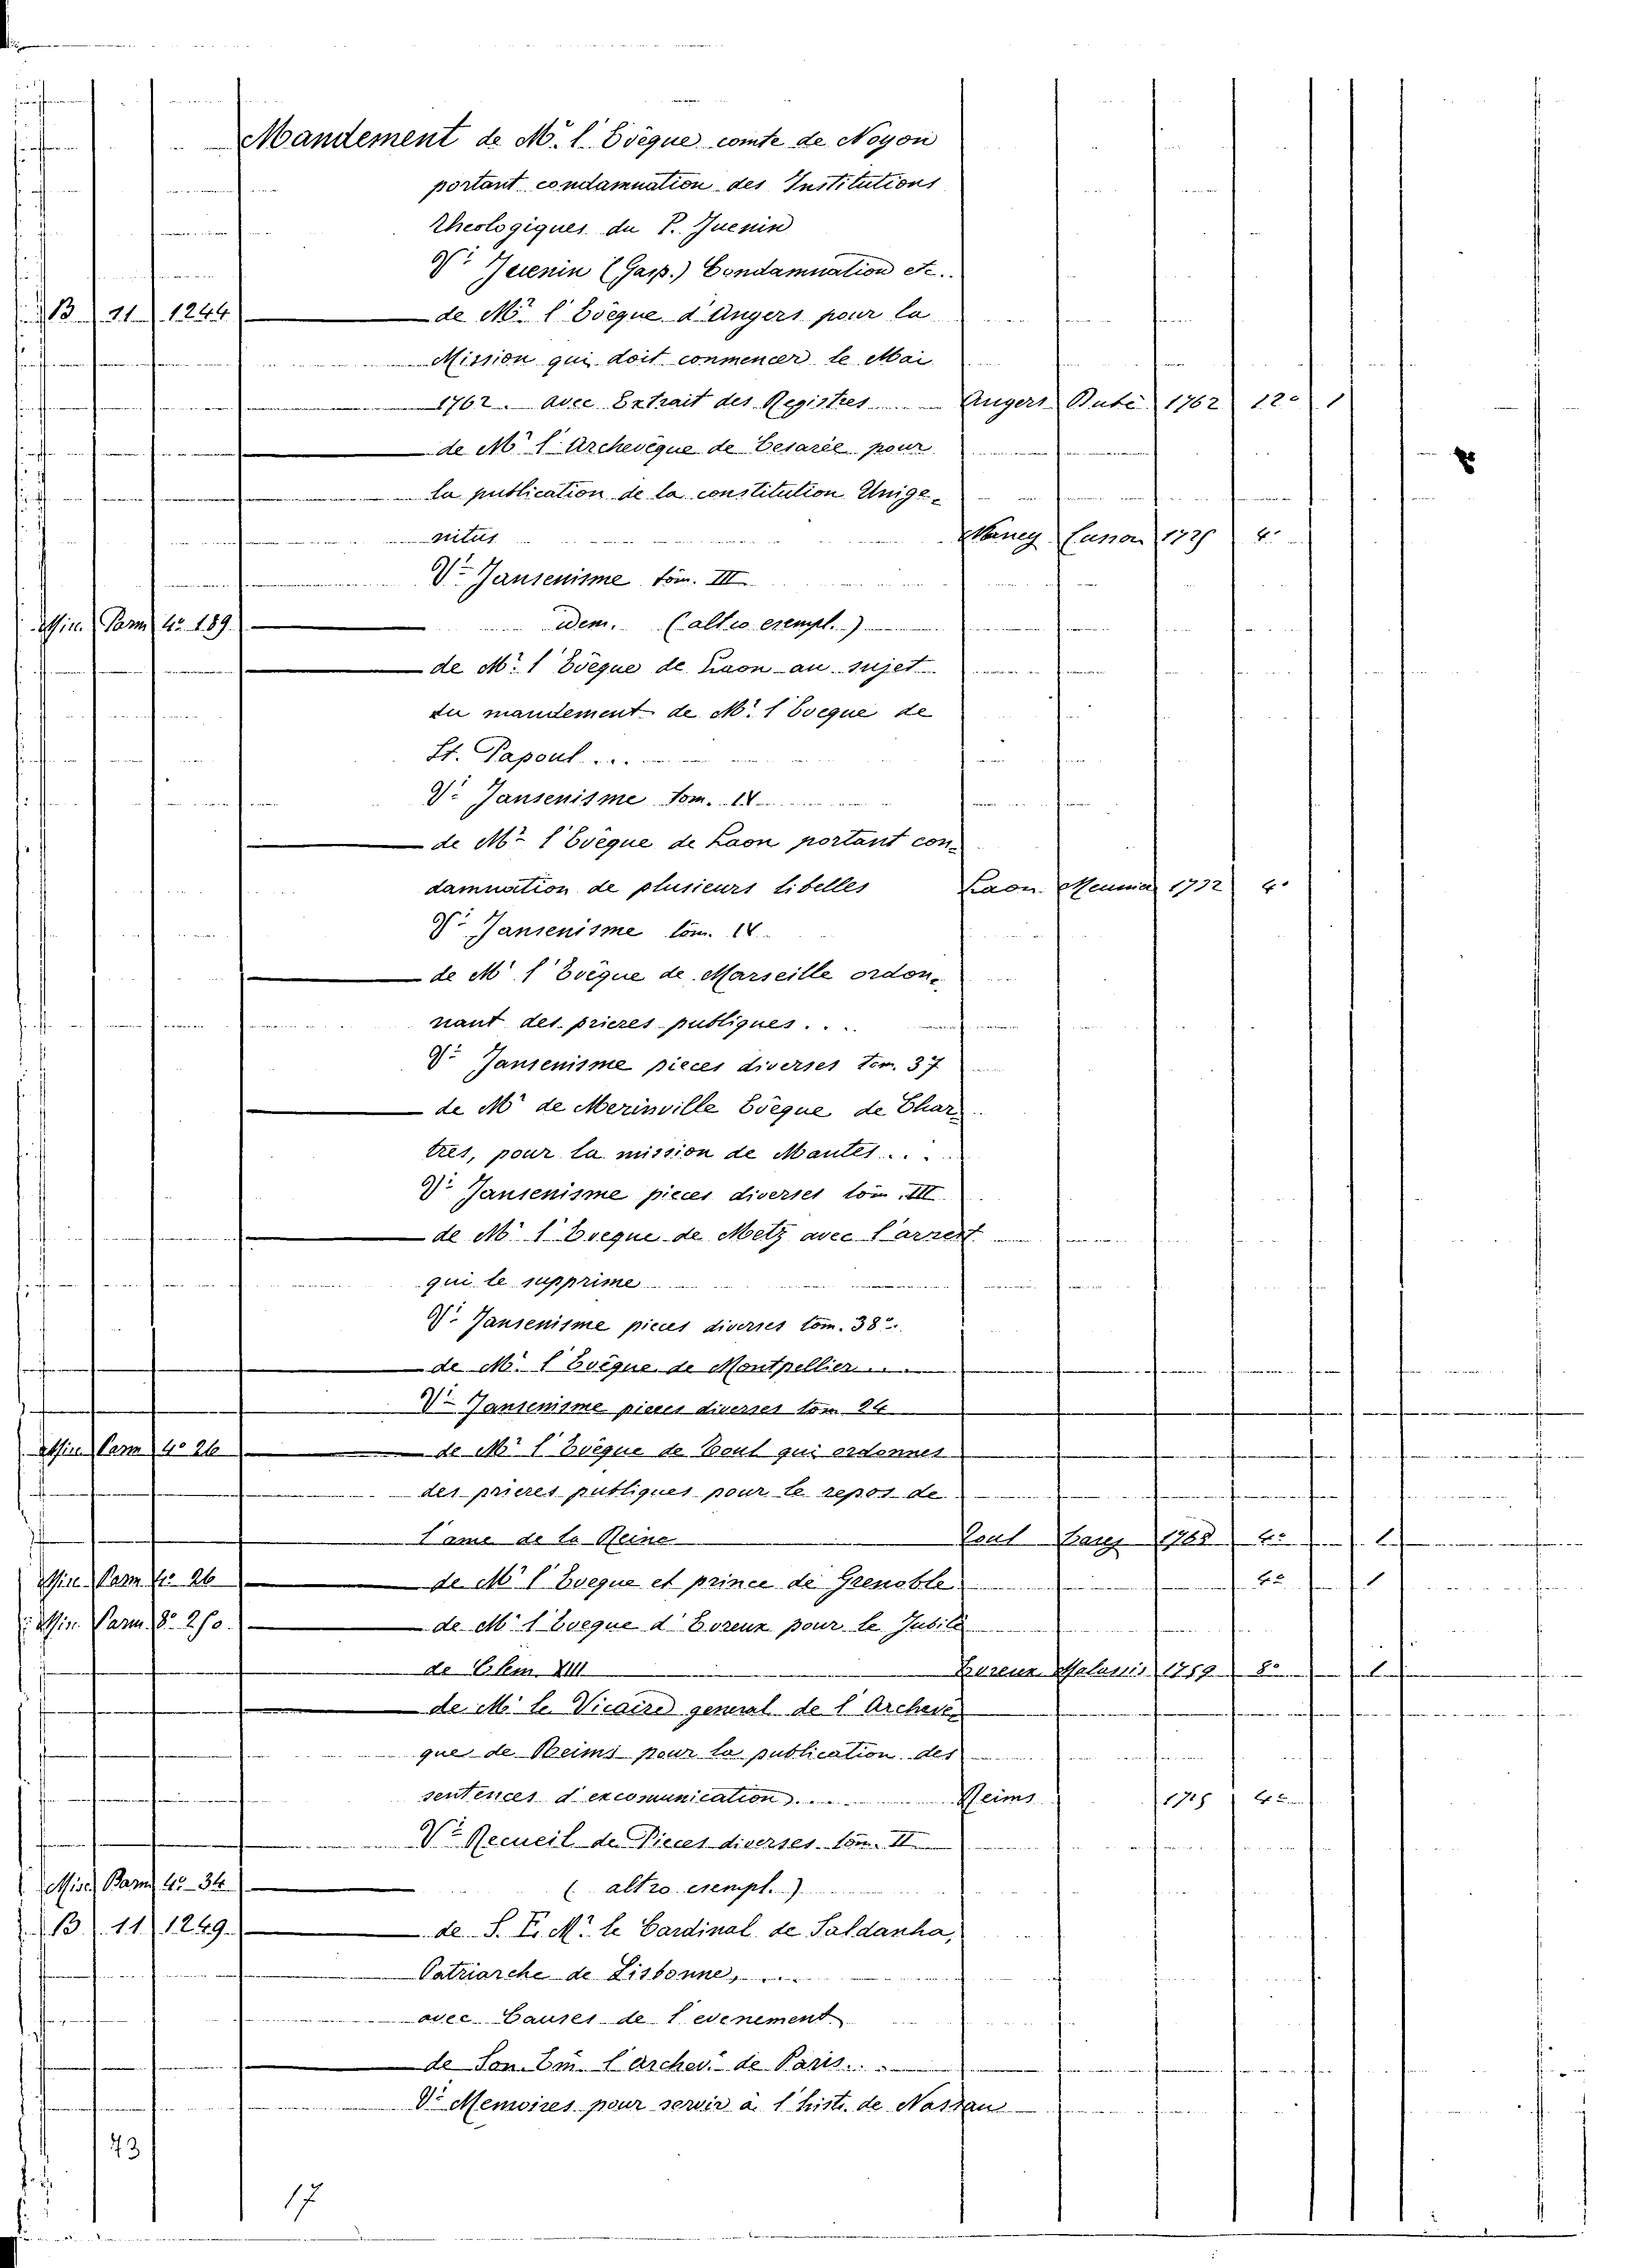 Mandement de Mr. l'Evêque comte de Noyon
portant condamnation des Institutions
theologiques du P. Juenin
Vi Juenin (Gasp.) Condamnation etc..
B 11 1244 de Mr l'Evêque d'Angers pour la
Mission qui doit conmencer le Mai
1762. avec Extrait des Registres Angers 1762 12º 1
de Mr l'Archevêque de Cesarée pour
la publication de la constitution Unige-
nitus 4º
Vi Jansenisme tom. III
Min. Parm 4º 189 idem. (altro exempl.)
de Mr. l'Evêque de Laon au sujet
du mandement de Mr. l'Eveque de
St. Papoul ...
Vi Jansenisme tom. IV
de Mr l'Evêque de Laon portant con-
damnation de plusieurs libelles Laon 1732 4º
Vi Jansenisme tom. IV
de Mr l'Evêque de Marseille ordon-
nant des prieres publiques ...
Vi Jansenisme pieces diverses tom. 37
de Mr de Merinville Evêque de Char-
tres, pour la mission de Mantes ...
Vi Jansenisme pieces diverses tom. III
de Mr l'Eveque de Metz avec l'arrest
qui le supprime
Vi Jansenisme pieces diverses tom. 38º
de Mr. l'Evêque de Montpellier ...
Vi Jansenisme pieces diverses tom 24
Min Parm 4º 26 de Mr l'Evêque de Toul qui ordonnes
des prieres publiques pour le repos de
l'ame de la Reine Toul 1768 4º 1
Min. Parm 4º 26 de Mr l'Eveque et prince de Grenoble 4º 1
Min. Parm. 8º 250 de Mr l'Eveque d'Evreux pour le Jubilé
de Clem XIII Evreux Malassis 1759 8º 1
de Mr le Vicaire general de l'Archevê-
que de Reims pour la publication des
sentences d'excomunication ... Reims 1715 4º
Vi Recueil de Pieces diverses tom. II
Misc. Parm 4º 34 (altro esempl.)
B 11 1249 de S. E. Mr. le Cardinal de Saldanha,
Patriarche de Lisbonne, ...
avec Causes de l'evenement
de Son Em. l'archev. de Paris ...
Vi Memoires pour servir à l'hist. de Nassau
43
17